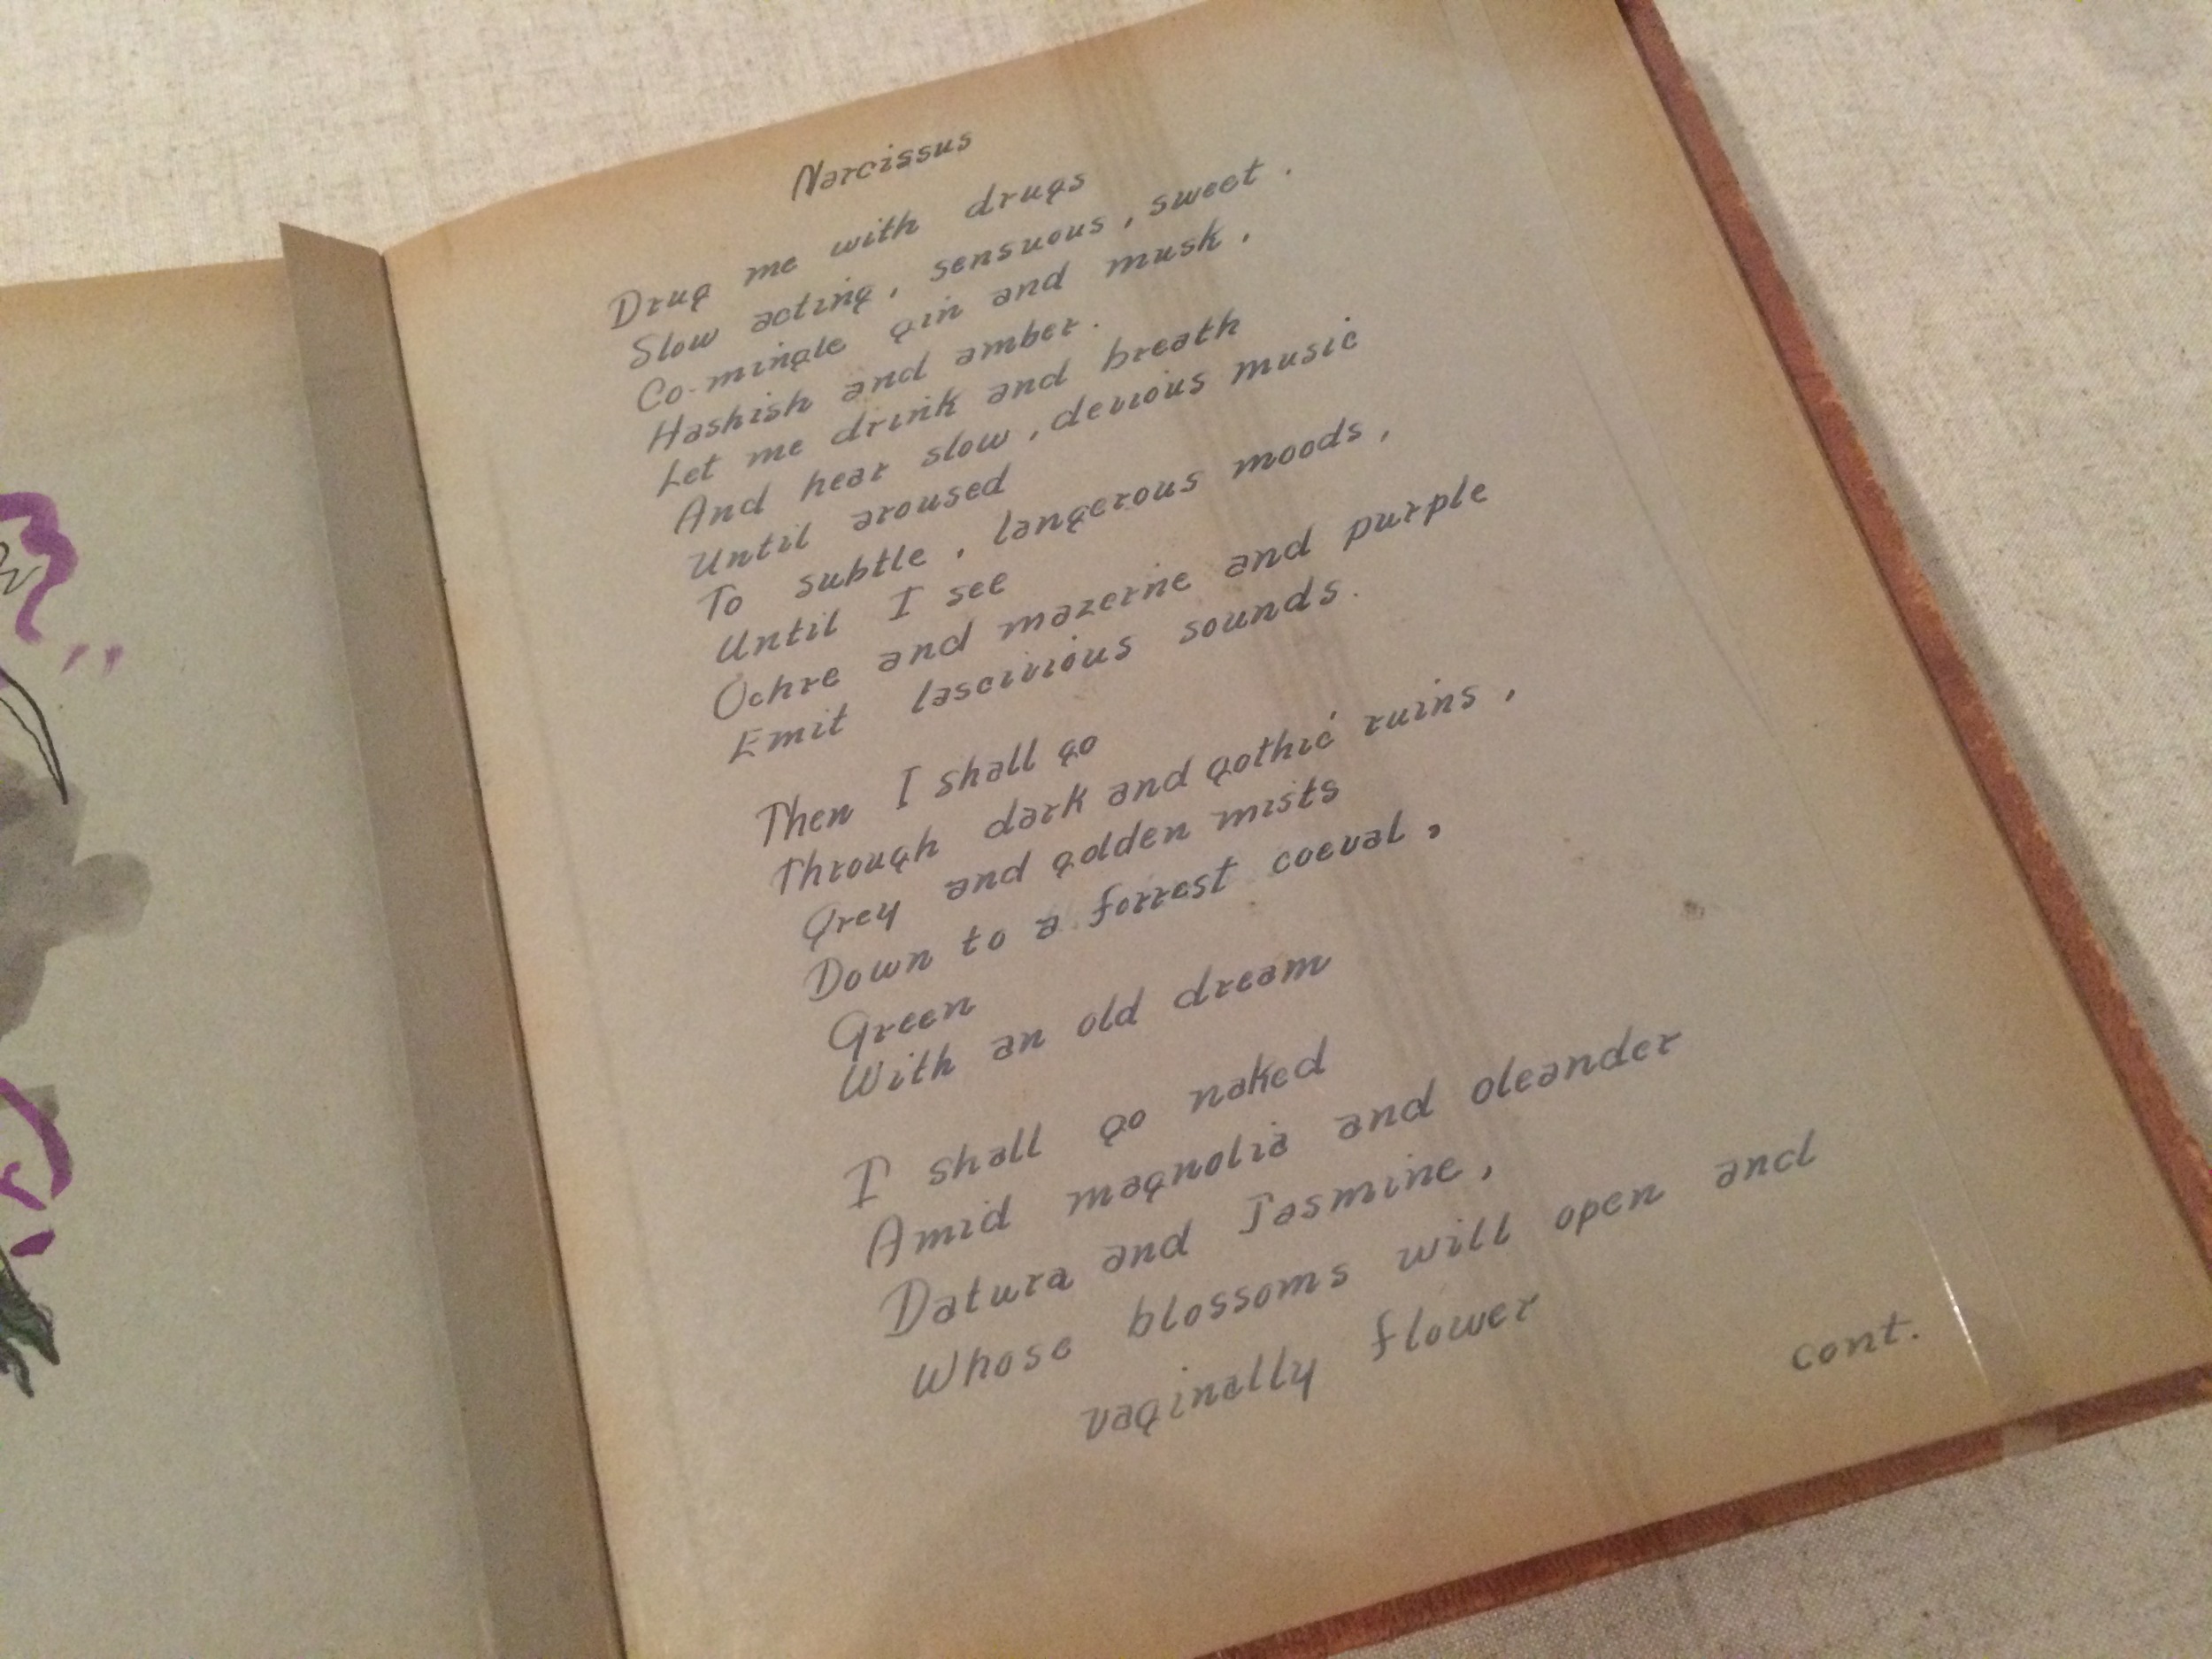 Narcissus
Drug me with drugs
Slow acting, sensuous, sweet.
Co-mingle gin and musk,
Hashish and amber.
Let me drink and breath
And hear slow, devious music
Until aroused
To subtle, langerous moods,
Until I see
Ochre and mazerine and purple
Emit lascivious sounds.
Then I shall go
Through dark and gothic ruins,
Grey and golden mists
Down to a forrest coeval,
Green
With an old dream
I shall go naked
Amid magnolia and oleander
Datura and Jasmine,
Whose blossoms will open and
vaginally flower
cont.